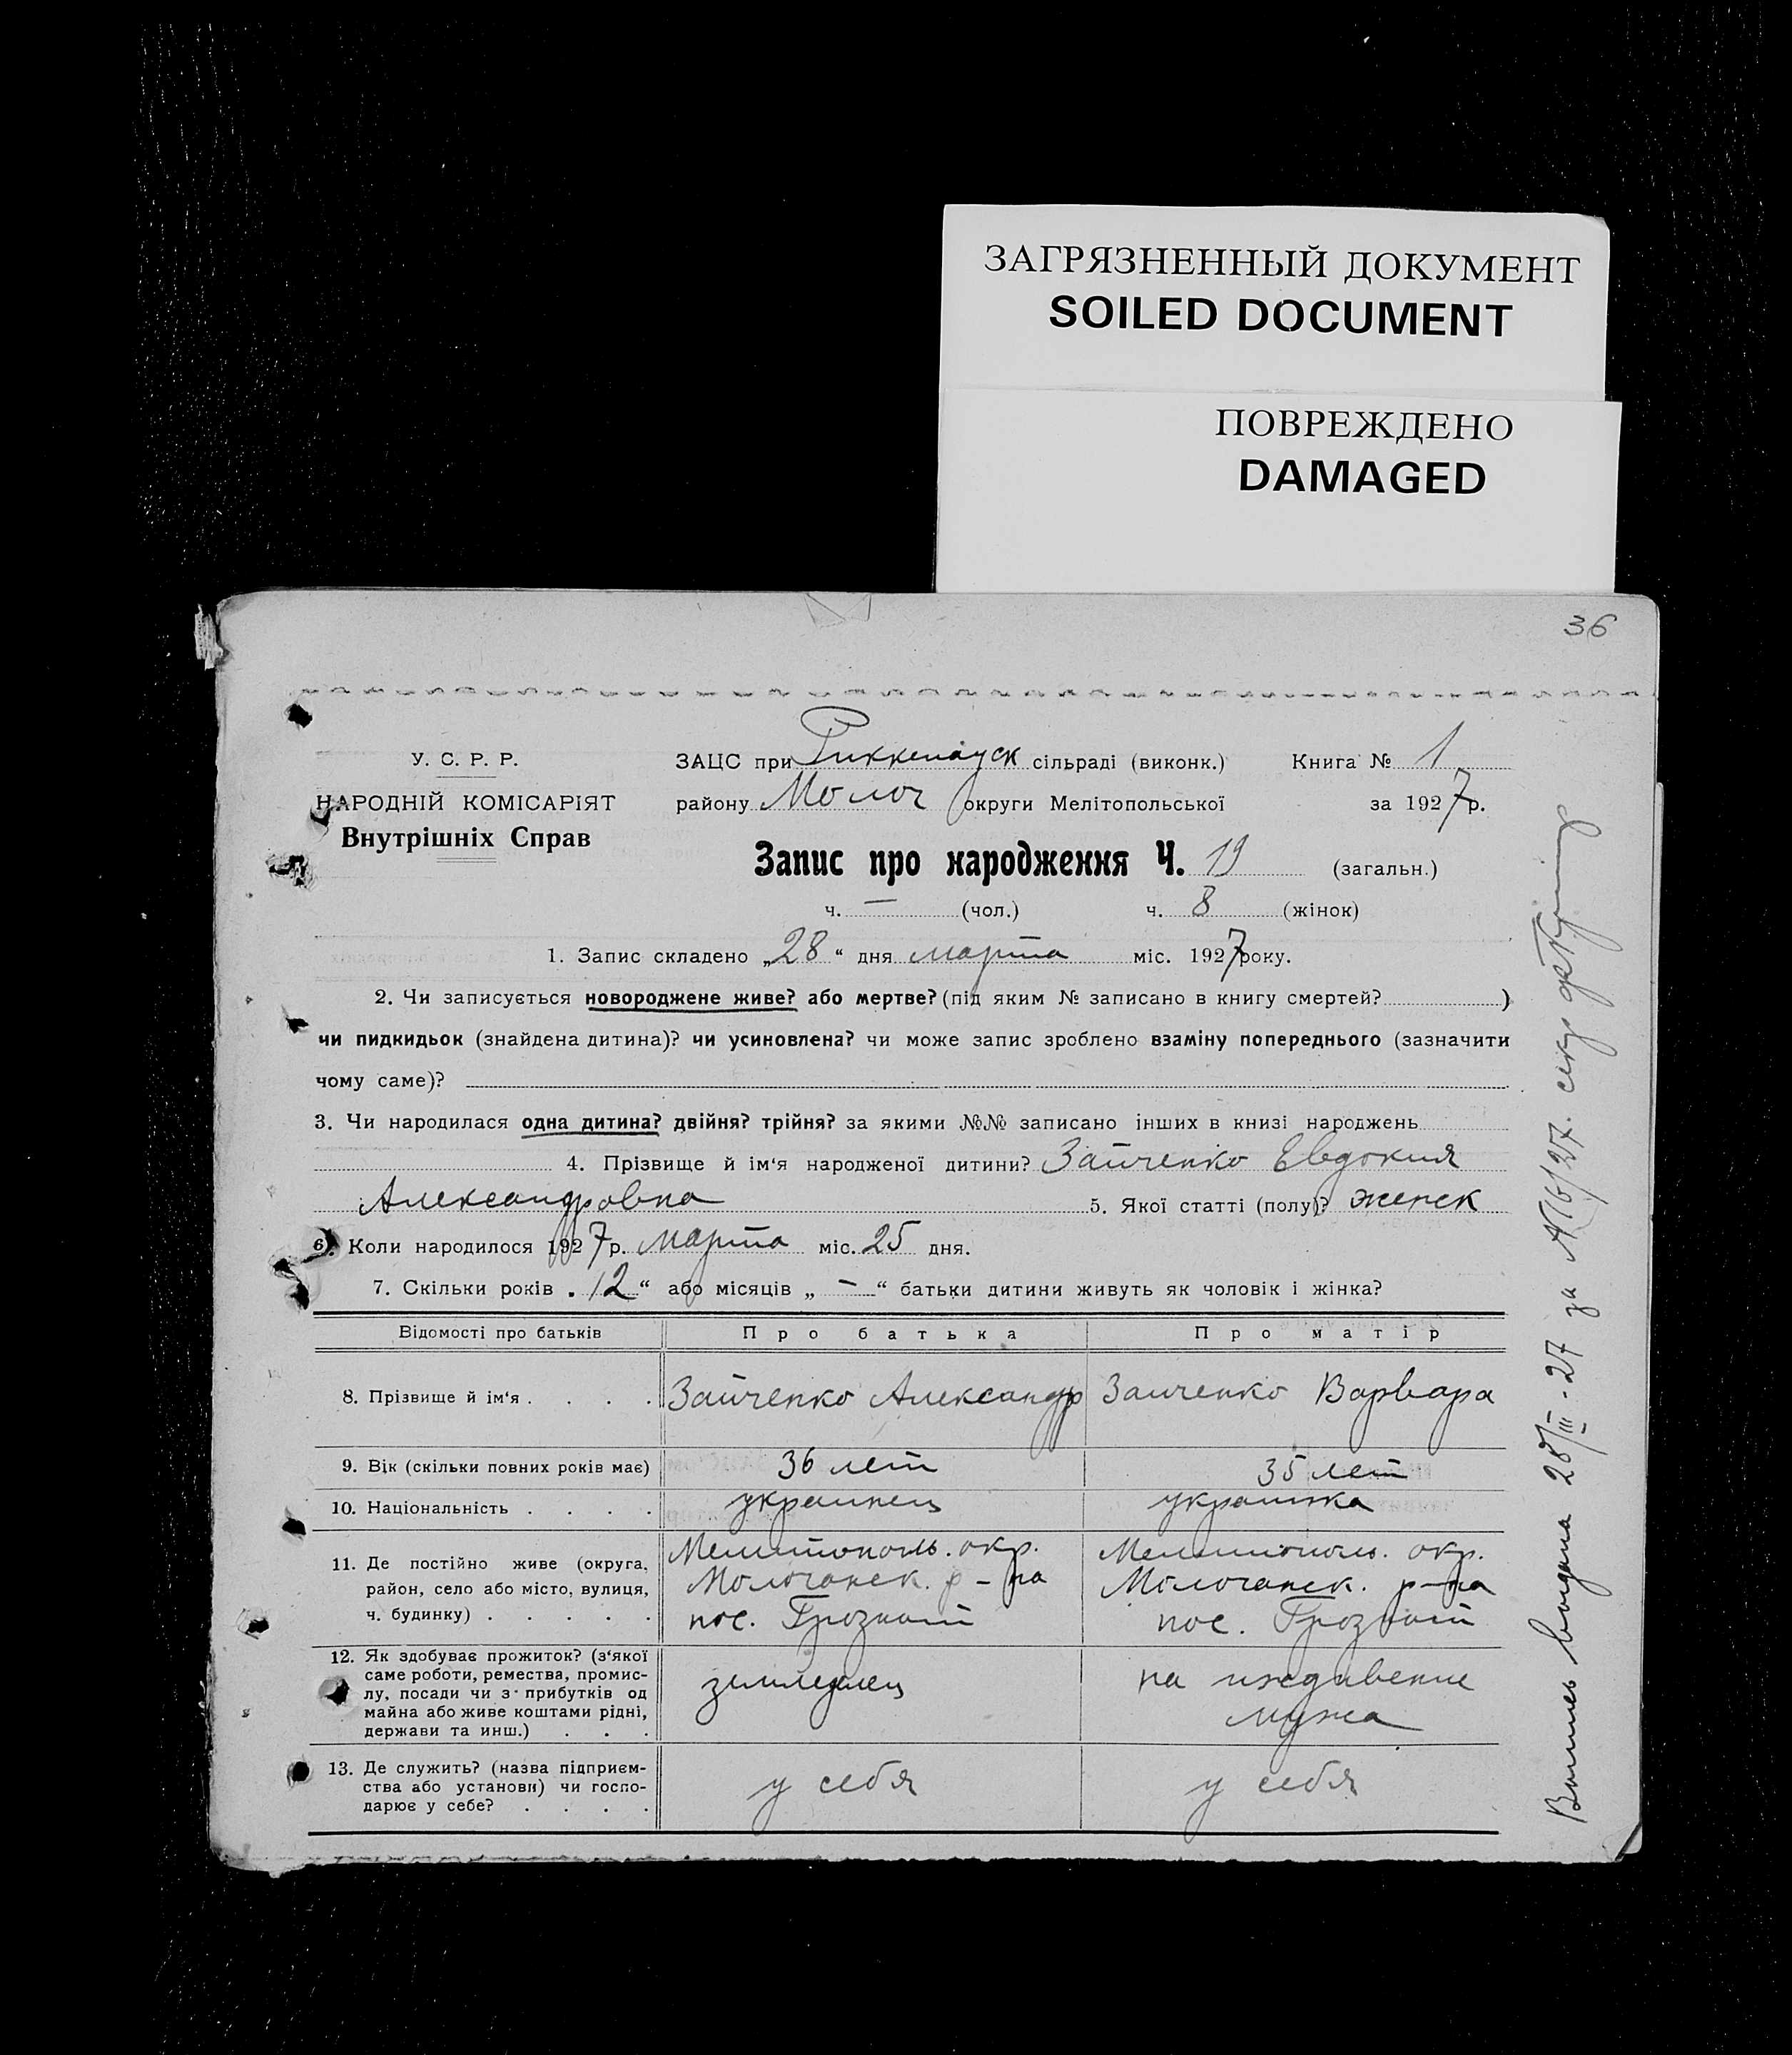 ЗАГРЯЗНЕННЫЙ ДОКУМЕНТ
SOILED DOCUMENT
ПОВРЕЖДЕНО
DAMAGED
36
У. С. Р. Р.
НАРОДНІЙ КОМІСАРІЯТ
Внутрішніх Справ
ЗАЦС при Риккенауск сільраді (виконк.) Книга № 1
району Молоч округи Мелітопольської за 1927 р.
Запис про народження Ч. 19 (загальн.)
ч. — (чол.) ч. 8 (жінок)
1. Запис складено „28“ дня марта міс. 1927 року.
2. Чи записується новороджене живе? або мертве? (під яким № записано в книгу смертей? )
чи пидкидьок (знайдена дитина)? чи усиновлена? чи може запис зроблено взаміну попереднього (зазначити
чому саме)?
3. Чи народилася одна дитина? двійня? трійня? за якими №№ записано інших в книзі народжень
4. Прізвище й ім‘я народженої дитини? Зайченко Евдокия
Александровна 5. Якої статті (полу)? женск
6. Коли народилося 1927 р. марта міс. 25 дня.
7. Скільки років „12“ або місяців „—“ батьки дитини живуть як чоловік і жінка?
Відомості про батьків Про батька Про матір
8. Прізвище й ім‘я . . . . Зайченко Александр Заиченко Варвара
9. Вік (скільки повних років має) 36 лет 35 лет
10. Національність . . . . украинец украинка
11. Де постійно живе (округа, район, село або місто, вулиця, ч. будинку) . . . . .
Мелитополь. окр.
Молочанск. р-на
пос. Грозный
Мелитополь. окр.
Молочанск. р-на
пос. Грозный
12. Як здобуває прожиток? (з‘якої саме роботи, ремества, промислу, посади чи з прибутків од майна або живе коштами рідні, держави та инш.) . . .
земледелец
на иждивение
мужа
13. Де служить? (назва підприємства або установи) чи господарює у себе? . . . .
у себя
у себя
Выпись выдана 28/III-27 за №16/27. секр